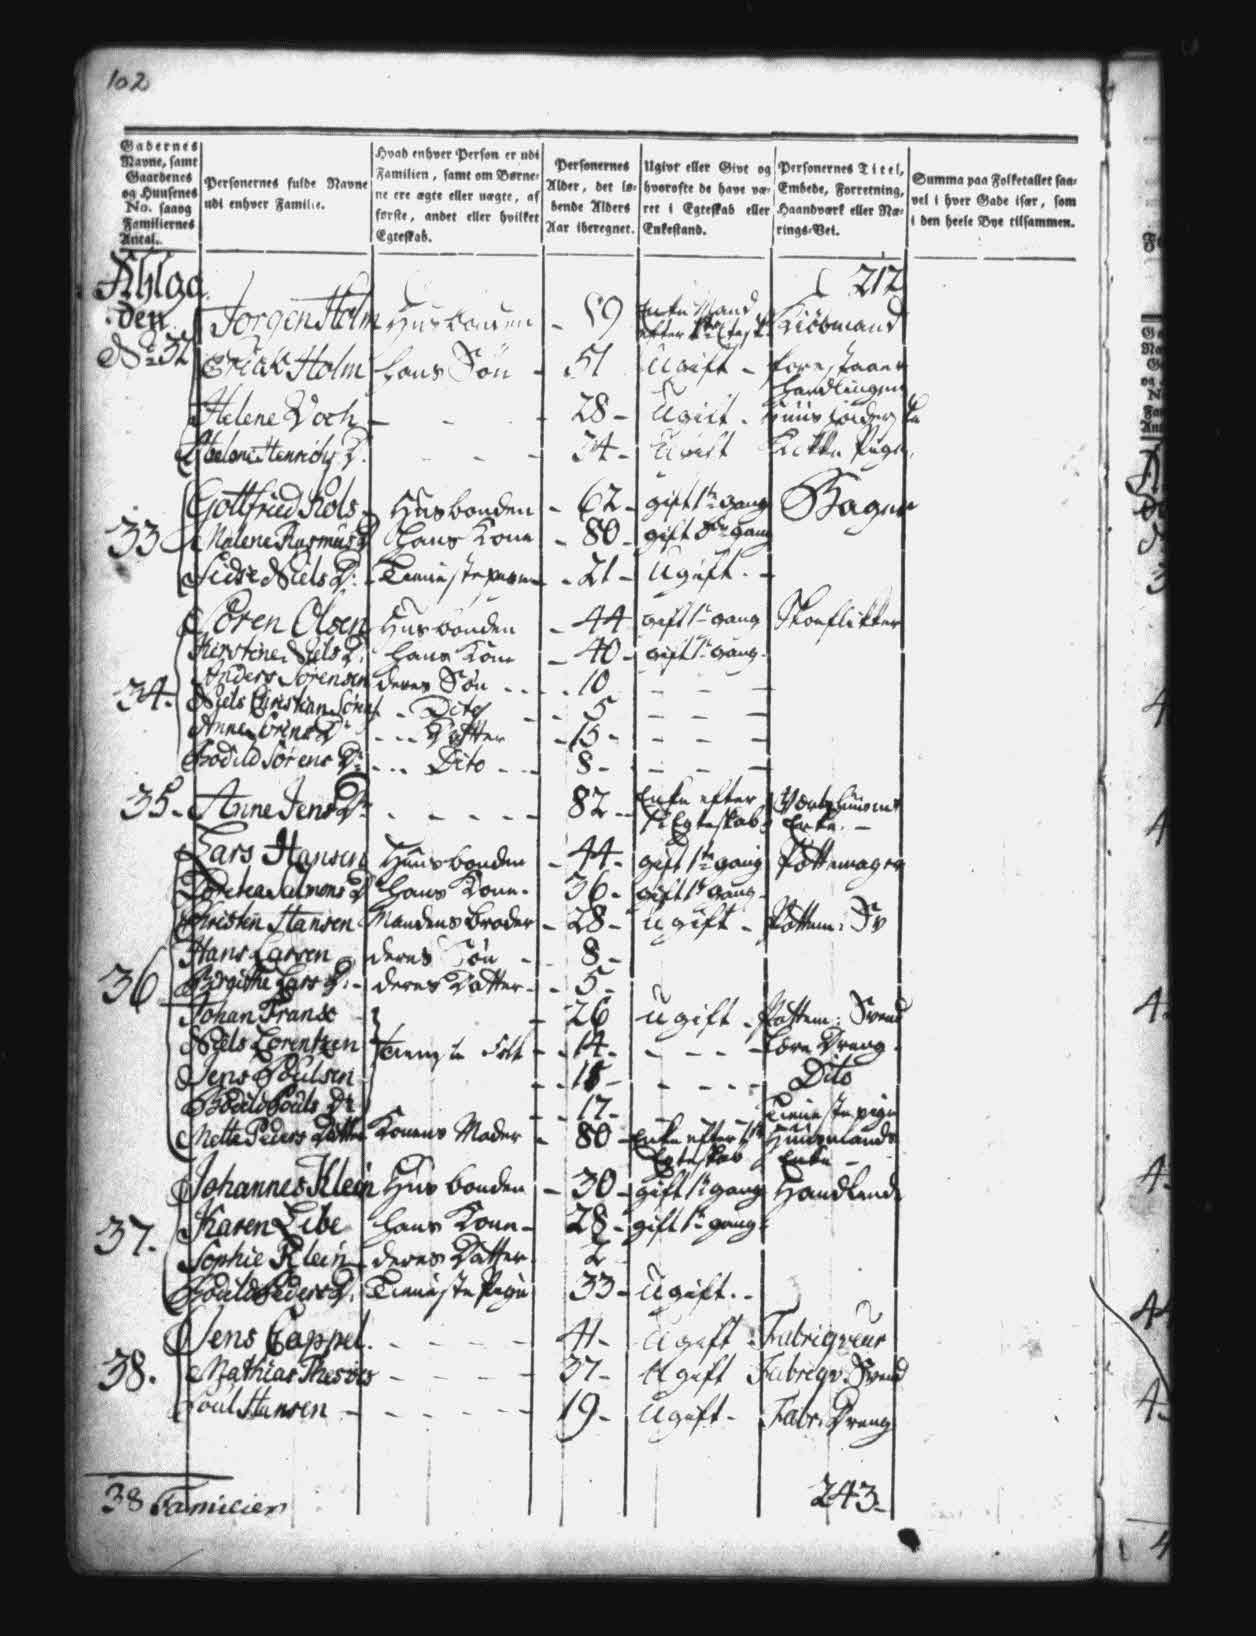 102
Gadernes Navne, samt Gaardenes og Huusenes No. saavog Familiernes Antal.
Personernes fulde Navne udi enhver Familie.
Hvad enhver Person er udi Familien, samt om Børnene ere ægte eller uægte, af første, andet eller hvilket Egteskab.
Personernes Alder, det løbende Alders Aar iberegnet.
Ugivt eller Givt og hvorofte de have været i Egteskab eller Enkestand.
Personernes Titel, Embede, Forretning, Haandværk eller Nærings-Vei.
Summa paa Folketallet saavel i hver Gade især, som i den heele Bye tilsammen.
212
Jørgen Holm Husbonden 59 Enke Mand efter 1te Egtesk. Kiöbmand
No 32 Erick Holm hans Sön - 51 Ugift - forestaaer Handlingen
Helene Koch - - - 28 - Ugift -
34 - Ugift
Gottfried Kols - Husbonden - 62 - gift 1te gang Bager
33 Malene Rasmus D. Hans Kone - 80 - gift gang
Sidse Niels D: Tieniste - 21 - Ugift -
Sören Olsen Husbonden - 44 gift 1te gang Skoeflikker
Kirstine Niels D: hans Kone - 40 - gift 1te gang
Anders Sörensen deres Sön - - 10 - - -
34. Niels Christian Sörens - Dito - - 5 - - -
Anne Sörens D: - - Datter - 15 - - - -
Bodild Sörens D: - - Dito - - 8 - - - -
35 - Anne Jens D: - - - - 82 - Enke efter 1te Egteskab Enke -
Lars Hansen Huusbonden - 44 - gift 1te gang Pottemager
Dorthea Salmons D: hans Kone - 36 - gift 1te gang -
Christen Hansen Mandens Broder - 28 - Ugift - Pottem: Sv
Hans Larsen deres Sön - - 8 -
36 Birgithe Lars D: - deres Datter - - 5 -
Johan Franse - 26 Ugift - Pottem: Svend
Niels Lorentzen Folk - - 14 - - - - Lære Dreng
Jens Poulsen - - - - - - Dito
Bodild Pouls D: - 17 - Tieneste pige
Mette Peders Datter Konens Moder - 80 - Enke efter 1te Egteskab Huusmands Enke -
Johannes Klein Husbonden - 30 - gift 1te gang Handlende
37. Karen Libe hans Kone - 28 - gift 1te gang
Sophie Klein - deres Datter - 2 -
Bodild Peders D: Tieneste Pige 33 - Ugift -
Jens Cappel. - - - - 41 - Ugift Fabriqveur
38. Mathias - - - - 37 - Ugift Fabriqv. Svend
Poul Hansen - - - - - 19 - Ugift - Fabr. Dreng
38 Familier
243 -